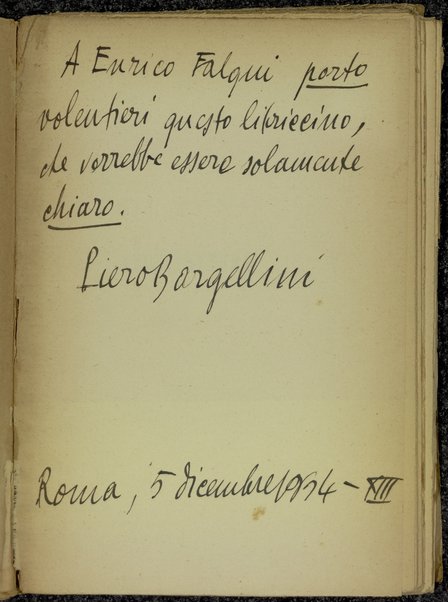 A Enrico Falqui porto
volentieri questo libriccino,
che vorrebbe essere solamente
chiaro.
Piero Bargellini
Roma, 5 dicembre 1934 - XIII